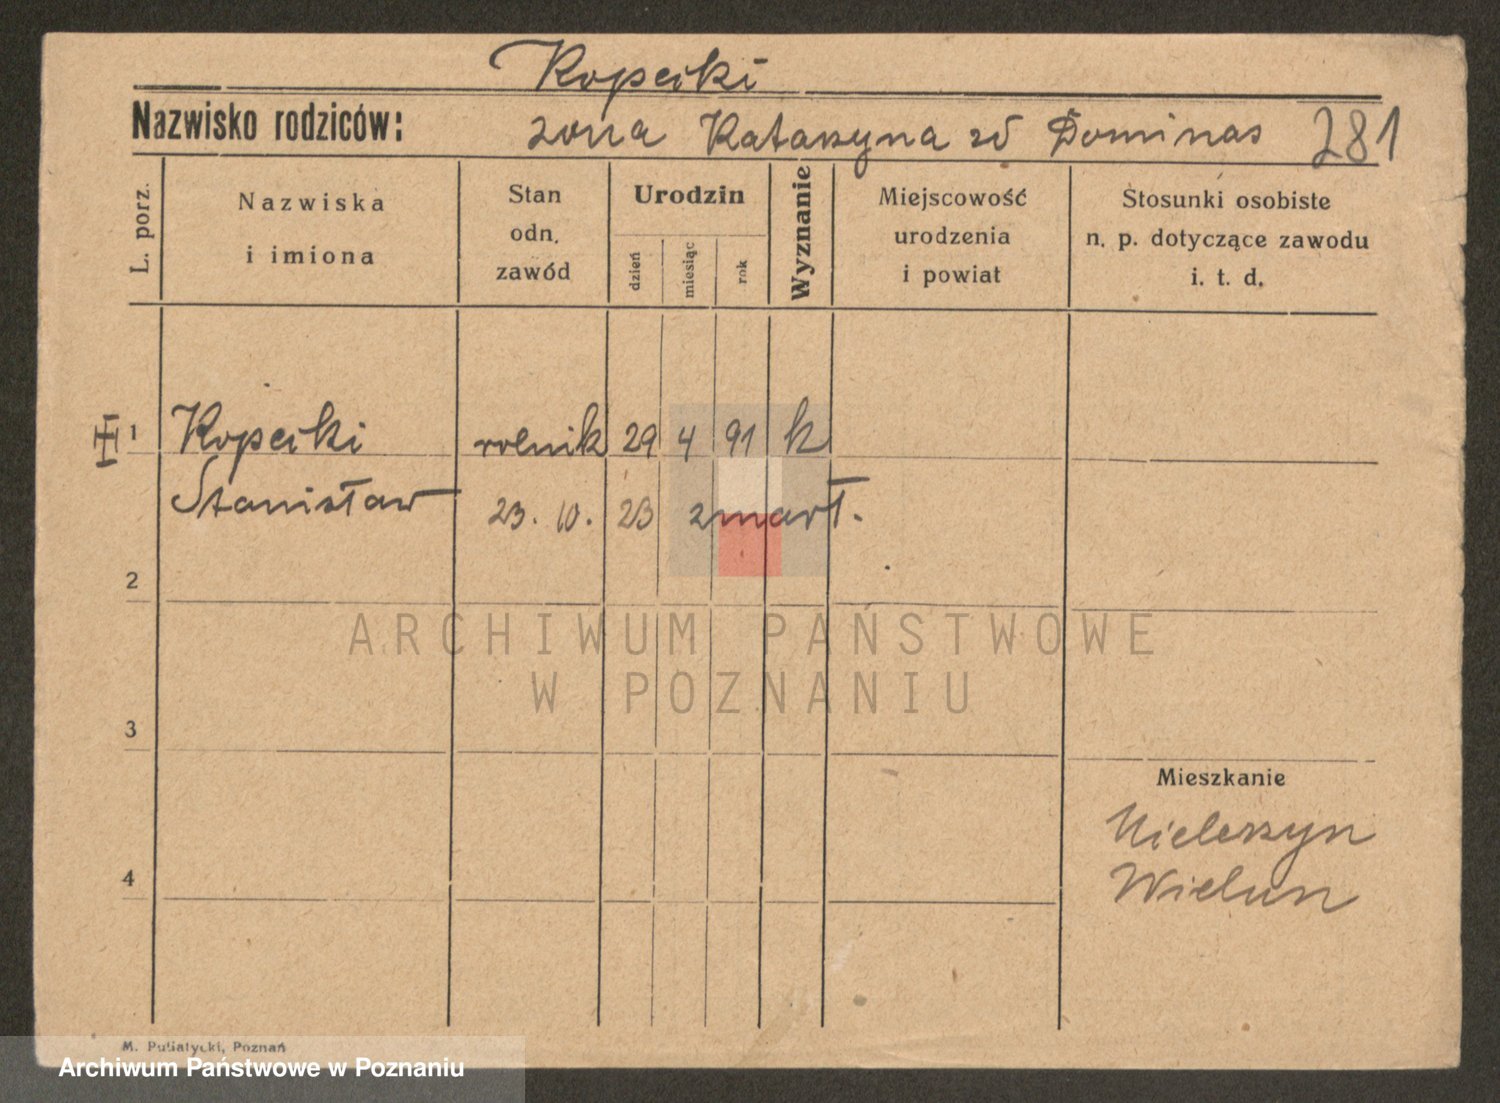 Kopecki
Nazwisko rodziców: żona Katarzyna zd Dominas 281
L. porz.
Nazwiska
i imiona
Stan
odn.
zawód
Urodzin
dzień
miesiąc
rok
Wyznanie
Miejscowość
urodzenia
i powiat
Stosunki osobiste
n. p. dotyczące zawodu
i. t. d.
1 Kopecki rolnik 29 4 91 k
Stanisław 23. 10. 23 zmarł.
2
ARCHIWUM PAŃSTWOWE
W POZNANIU
3
Mieszkanie
Wieluń
4
M. Putiatycki, Poznań
Archiwum Państwowe w Poznaniu